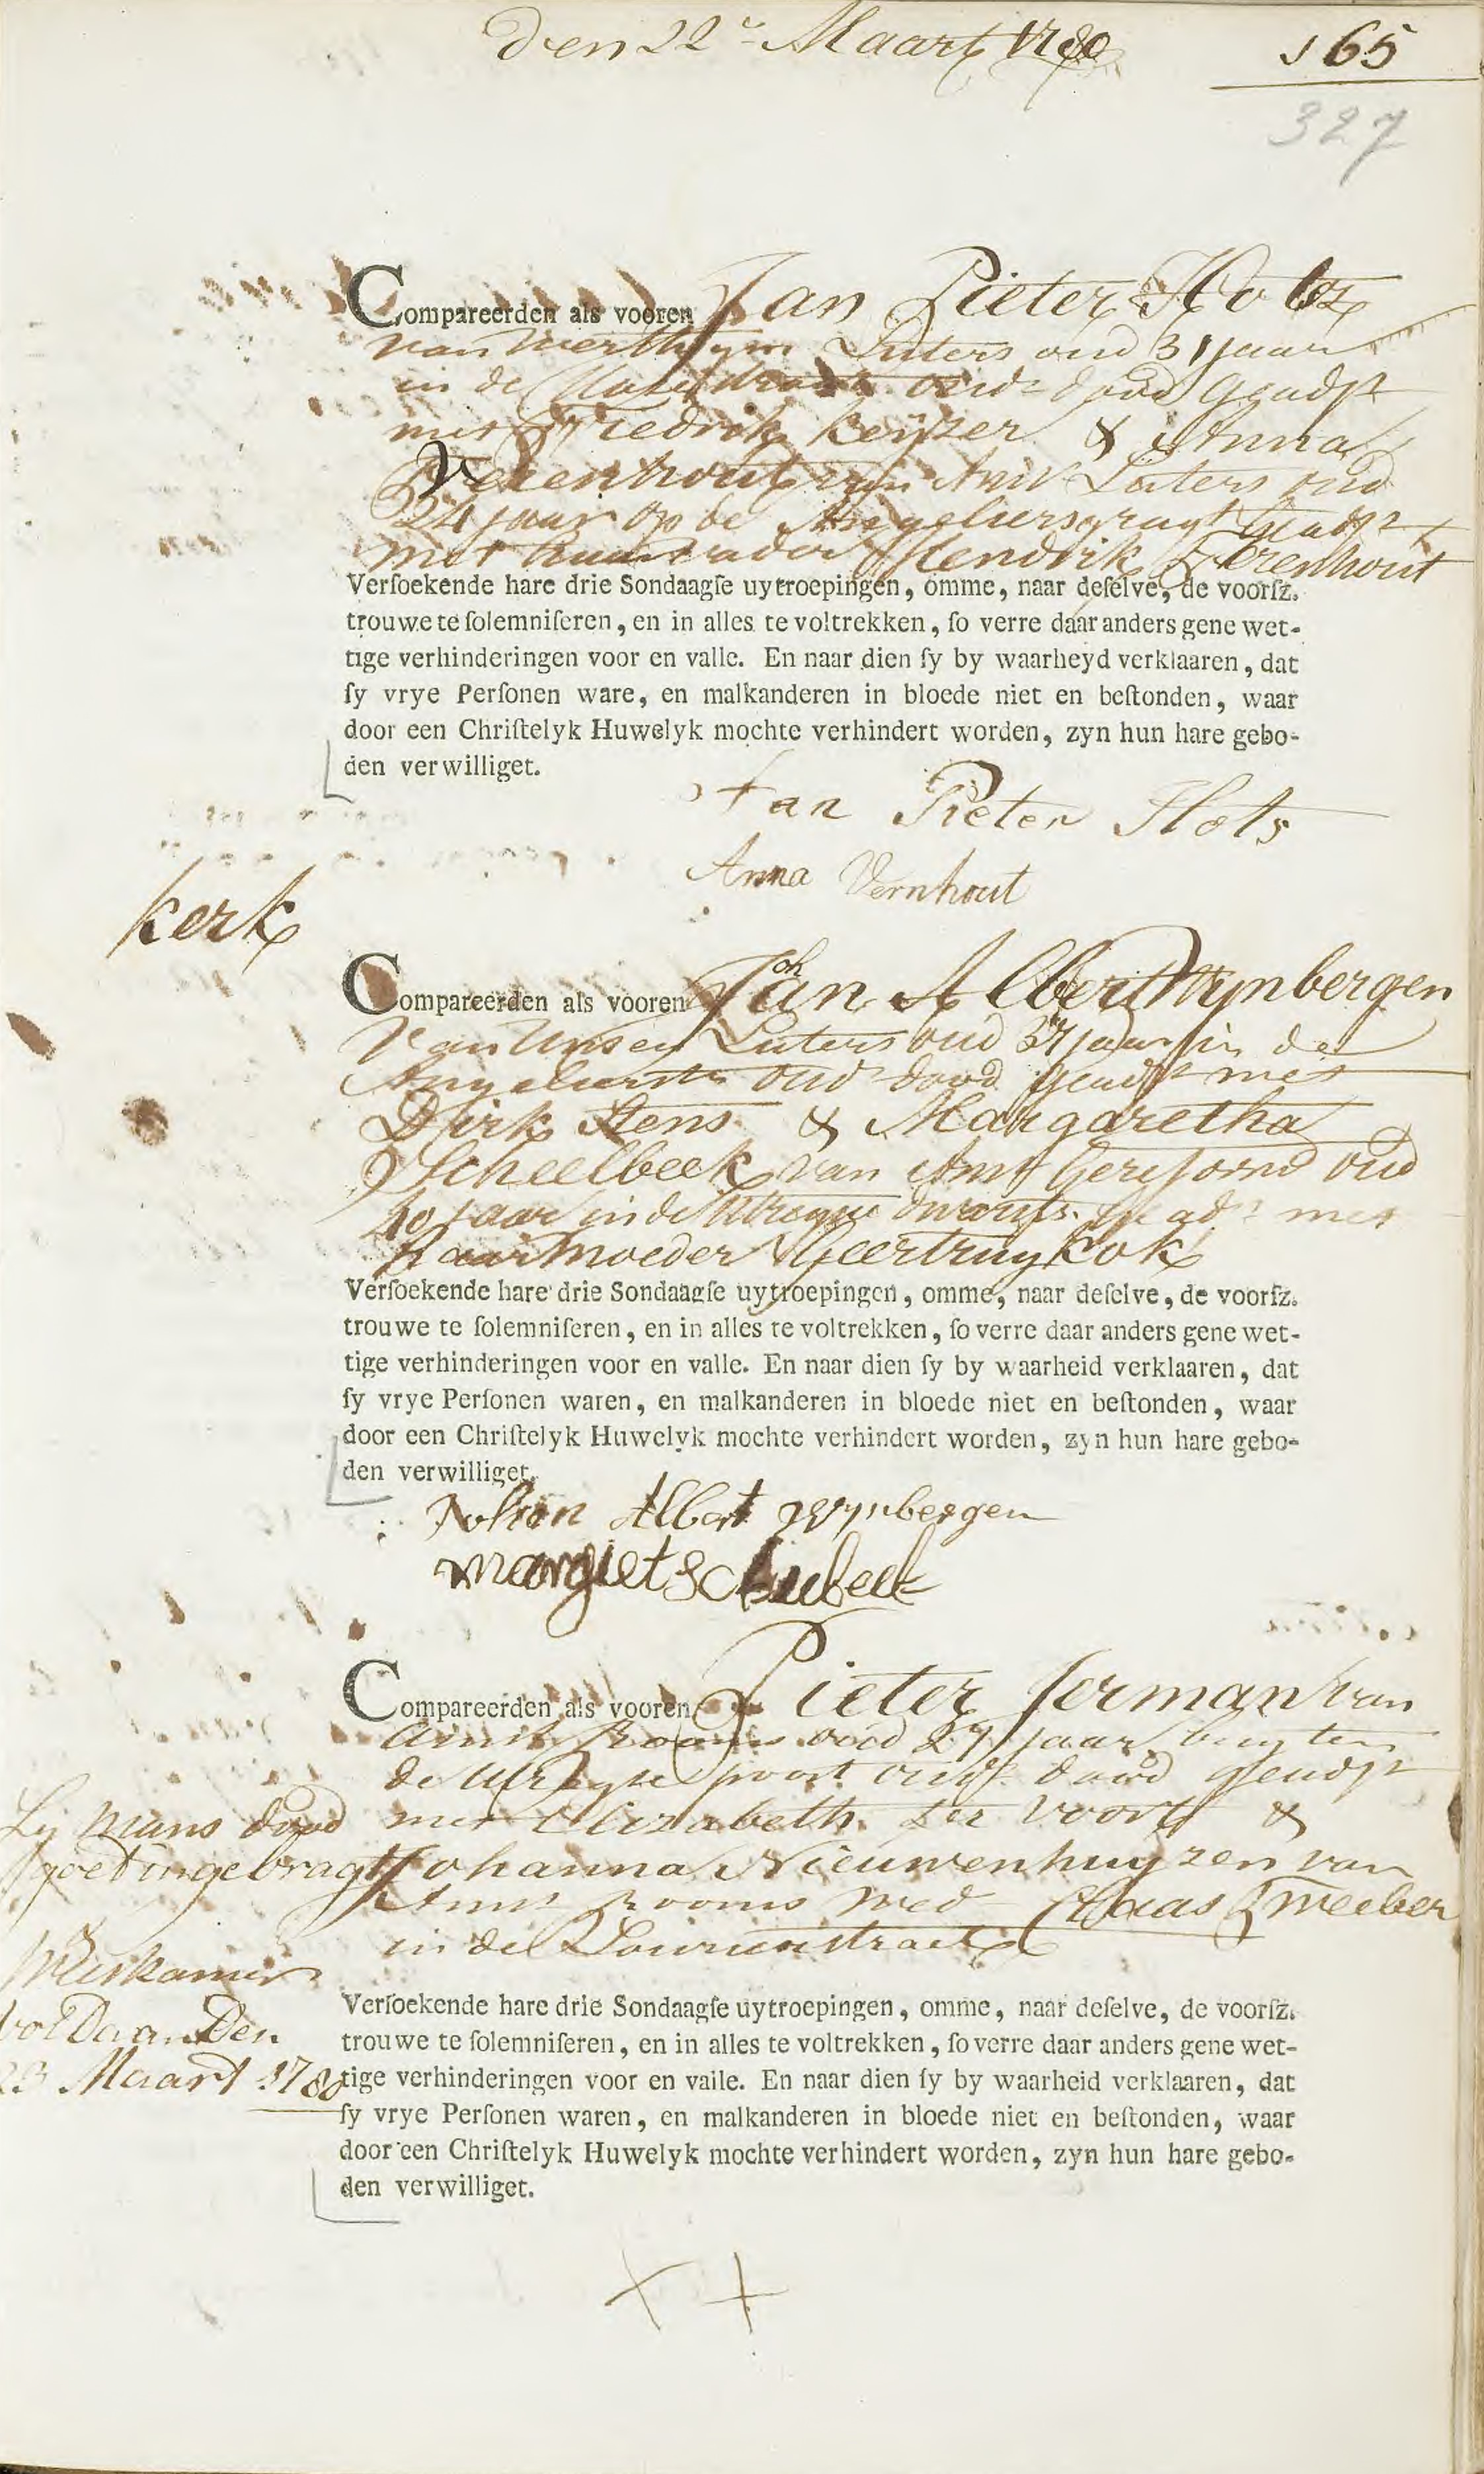 Den 22e Maart 1780
165
327
Compareerden als vooren Jan Pieter Hotz
van Luters oud 31 jaar
in de ouds dood geads
met Fredrik Keyser & Anna
Verenhout van Amst Luters oud
24 jaar op de Angeliersgragt geads
met haar vader Hendrik Verenhout
Verſoekende hare drie Sondaagſe uytroepingen, omme, naar deſelve, de voorſz.
trouwe te ſolemniſeren, en in alles te voltrekken, ſo verre daar anders gene wet-
tige verhinderingen voor en valle. En naar dien ſy by waarheyd verklaaren, dat
ſy vrye Perſonen ware, en malkanderen in bloede niet en beſtonden, waar
door een Chriſtelyk Huwelyk mochte verhindert worden, zyn hun hare gebo-
den verwilliget.
Jan Pieter Hots
Anna Vernhout
kerk
Compareerden als vooren Johan Albert Wynbergen
van Luters oud jaar in de
Angelierstr ouds dood geads met
Dirk Stens & Margaretha
Scheelbeek van Amst Gereformd oud
40 jaar in de dwarss geads met
haar moeder Geertruy Kok
Verſoekende hare drie Sondaagſe uytroepingen, omme, naar deſelve, de voorſz.
trouwe te ſolemniſeren, en in alles te voltrekken, ſo verre daar anders gene wet-
tige verhinderingen voor en valle. En naar dien ſy by waarheid verklaaren, dat
ſy vrye Perſonen waren, en malkanderen in bloede niet en beſtonden, waar
door een Chriſtelyk Huwelyk mochte verhindert worden, zyn hun hare gebo-
den verwilliget.
Johan Albert Wynbergen
margiet
Compareerden als vooren Pieter Jerman van
Amst Rooms oud 27 jaar buyten
de Utregse poort ouds dood geads
met Elizabeth ter Voort &
Johanna Nieuwenhuyzen van
Amst Rooms wed Claas Zweeber
in de Laurierstraat
mans dood
goet ingebragt
Weeskamer
voldaan Den
23 Maart 1780
Verſoekende hare drie Sondaagſe uytroepingen, omme, naar deſelve, de voorſz.
trouwe te ſolemniſeren, en in alles te voltrekken, ſo verre daar anders gene wet-
tige verhinderingen voor en valle. En naar dien ſy by waarheid verklaaren, dat
ſy vrye Perſonen waren, en malkanderen in bloede niet en beſtonden, waar
door een Chriſtelyk Huwelyk mochte verhindert worden, zyn hun hare gebo-
den verwilliget.